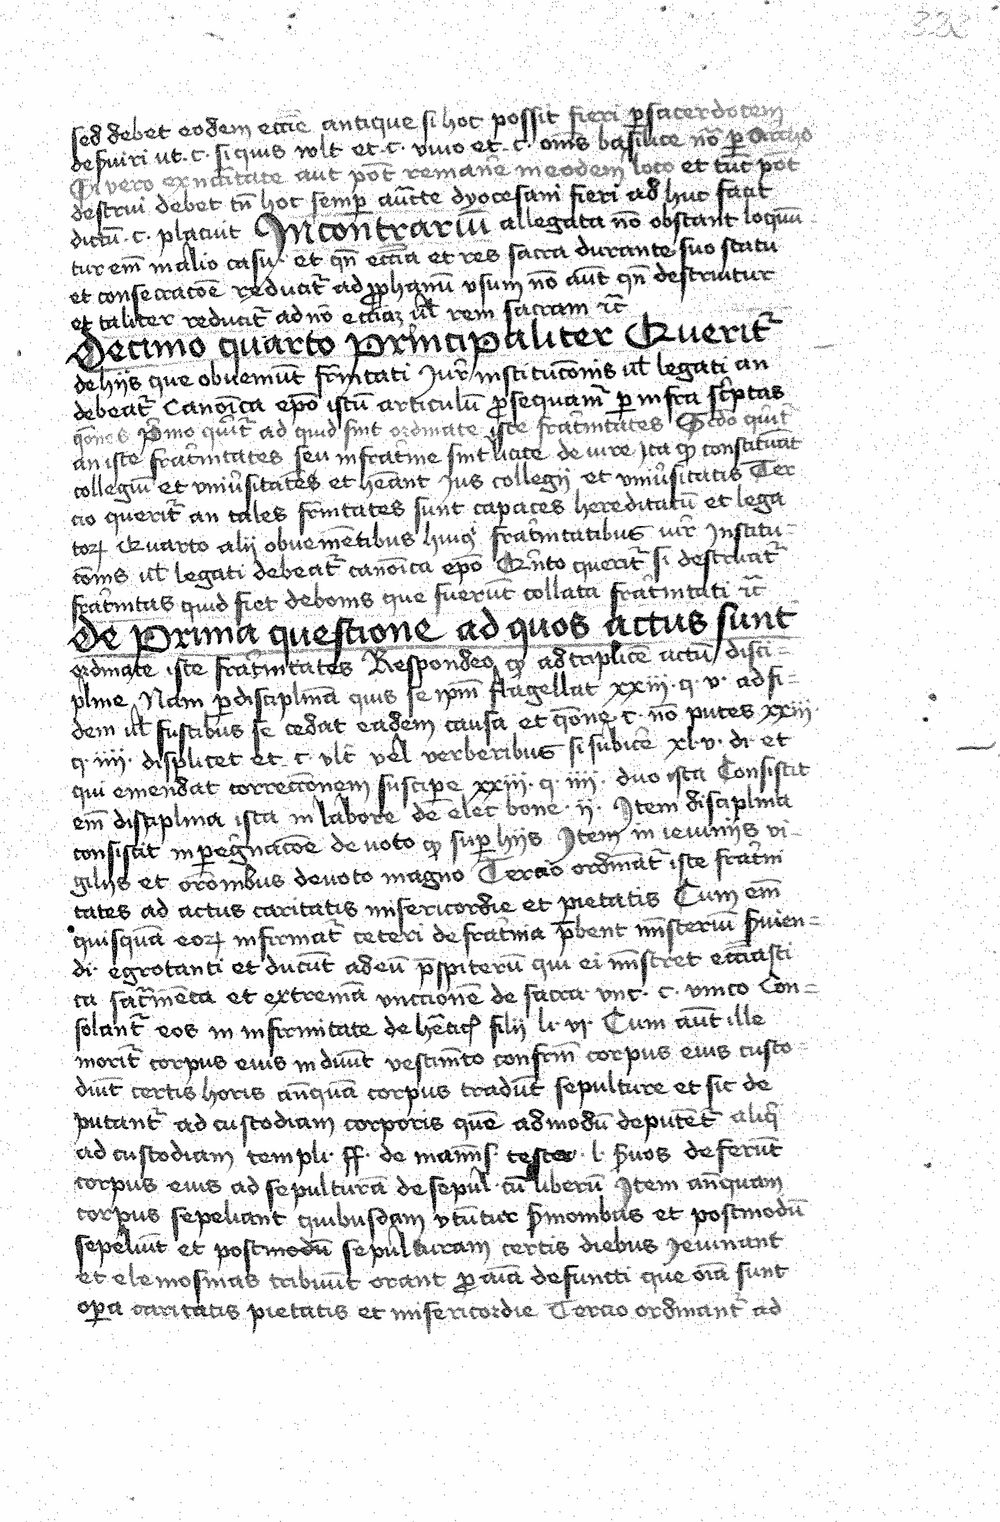 sed debet eodem eccīe antique si hoc possit fieri ꝑ sacerdotem
deſviri ut .c. si quis volt et .c. vnio et .c. om̄s basilice nō ꝑ
Si vero ex neccitate aut pōt remanēe in eodem loco et tūc pōt
destrui debet tn̄ hoc semꝑ auc̄te dyocesani fieri ad huc facit
dictū .c. placuit In contrariū allegata nō obstant loquū
tur em̄ in alio casu et qn̄ eccīa et res sacra durante suo statu
et consecracōe reducit᷑ ad ꝓphanū vsum nō aūt qn̄ destruitur
et taliter reducit᷑ ad nō eccīaꝫ ul̄ rem sacram ꝛc̄
Decimo quarto principaliter Querit᷑
de hijs que obueniūt fr̄nitati Iur̄ institucōnis ul̄ legati an
debeat᷑ Canoīca ep̄o istū articulū ꝓsequam᷑ ꝑ infra sc̄ptas
qōnes P̄mo querit᷑ ad quid sint ordinate iste frat̄nitates Sc̄do querit᷑
an iste frat̄nitates seu in frat̄nie sint licite de iure ita ꝙ constituāt
collegiū et vniūsitates et hēant ius collegij et vniūsitatis Ter
cio querit᷑ an tales fr̄nitates sunt capaces hereditatū et lega
toꝝ Quarto alij obueniētibus huiꝰ frat̄nitatibus iur̄ Institu-
cōnis ul̄ legati debeat᷑ canoīca ep̄o Qūnto querit᷑ si destruat᷑
frat̄nitas quid fiet de bonis que fuerūt collata frat̄nitati ꝛc̄
De prima questione ad quos actus sunt
ordinate iste frat̄nitates Respondeo ꝙ ad triplicē actū disci-
pline Nam ꝑ disciplinā quis se ip̄m flagellat xxiij. q. v. ad fi-
dem ul̄ fustibus se cedat eadem causa et qōne .c. nō putes xxiij.
q. iiij. displicet et .c. vlt̄ vel verberibus si subicē xl.v. di. et
qui emendat correccōnem suscipe xxiij. q. iiij. duo ista Consistit
em̄ disciplina ista in labore de elec̄ bone .ij. Item disciplina
consistit in ꝑegnacōe de uoto ꝙ suꝑ hijs Item in ieiunijs vi-
gilijs et orōnibus deuoto magno Tercio ordinat᷑ iste frat̄ni
tates ad actus caritatis misericordie et pietatis Cum em̄
quisquā eoꝝ infirmat᷑ ceteri de frat̄nia p̄bent mīsteriū ſ̄uien-
di egrotanti et ducūt ad eū p̄spiterū qui ei mīstret eccīasti
ca sac̄mēta et extremā vnccionē de sacra vnc̄. c. vnico Con-
solant᷑ eos in infirmitate de hētic̄ filij li. vj. Cum aūt ille
morit᷑ corpus eius induūt vestimēto confrīn corpus eius custo-
diūt certis horis anquā corpus tradūt sepulture et sic de
putant᷑ ad custodiam corporis quē ad modū deputēt᷑ aliqi
ad custodiam templi. ff. de manūs. testa. l. ſ̄uos deferūt
corpus eius ad sepulturā de sepul. cū liberū Item anquam
corpus sepeliant quibusdam vtūtur ſ̄monibus et postmodū
sepeliūt et postmodū sepulturam certis diebus Ieiunant
et elemosinas tribuūt orant ꝓ aīa defuncti que oīa sunt
oꝑa caritatis pietatis et misericordie Tercio ordinant᷑ ad